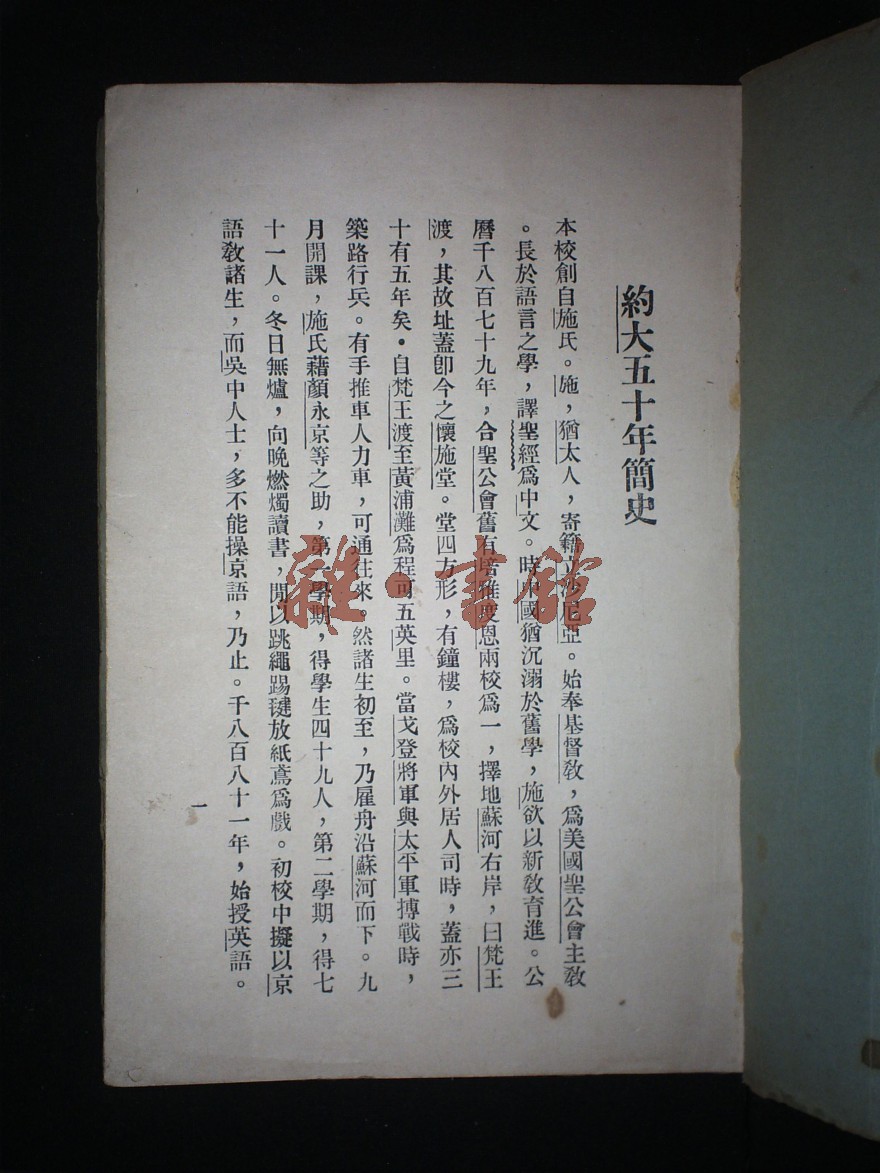 約大五十年簡史
本校創自施氏。施，猶太人，寄籍立沙尼亞。始奉基督教，爲美國聖公會主教
。長於語言之學，譯聖經爲中文。時中國猶沉溺於舊學，施欲以新教育進。公
曆千八百七十九年，合聖公會舊有培雅度恩兩校爲一，擇地蘇河右岸，曰梵王
渡，其故址蓋卽今之懷施堂。堂四方形，有鐘樓，爲校內外居人司時，蓋亦三
十有五年矣。自梵王渡至黃浦灘爲程可五英里。當戈登將軍與太平軍搏戰時，
築路行兵。有手推車人力車，可通往來。然諸生初至，乃雇舟沿蘇河而下。九
月開課，施氏藉顏永京等之助，第一學期，得學生四十九人，第二學期，得七
十一人。冬日無爐，向晚燃燭讀書，閒以跳繩踢毽放紙鳶爲戲。初校中擬以京
語教諸生，而吳中人士，多不能操京語，乃止。千八百八十一年，始授英語。
一
雜·書館